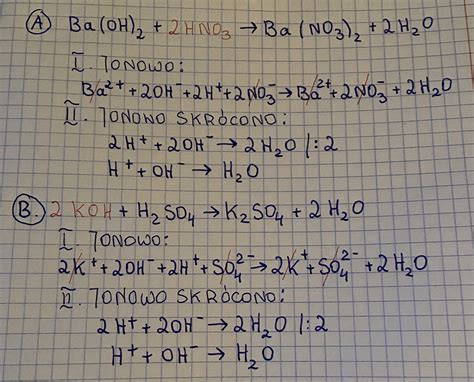 A Ba(OH)₂ + 2HNO₃ → Ba(NO₃)₂ + 2H₂O
I. JONOWO:
Ba²⁺ + 2OH⁻ + 2H⁺ + 2NO₃⁻ → Ba²⁺ + 2NO₃⁻ + 2H₂O
II. JONOWO SKRÓCONO:
2H⁺ + 2OH⁻ → 2H₂O /:2
H⁺ + OH⁻ → H₂O
B. 2 KOH + H₂SO₄ → K₂SO₄ + 2H₂O
I. JONOWO:
2K⁺ + 2OH⁻ + 2H⁺ + SO₄²⁻ → 2K⁺ + SO₄²⁻ + 2H₂O
II. JONOWO SKRÓCONO:
2H⁺ + 2OH⁻ → 2H₂O /:2
H⁺ + OH⁻ → H₂O